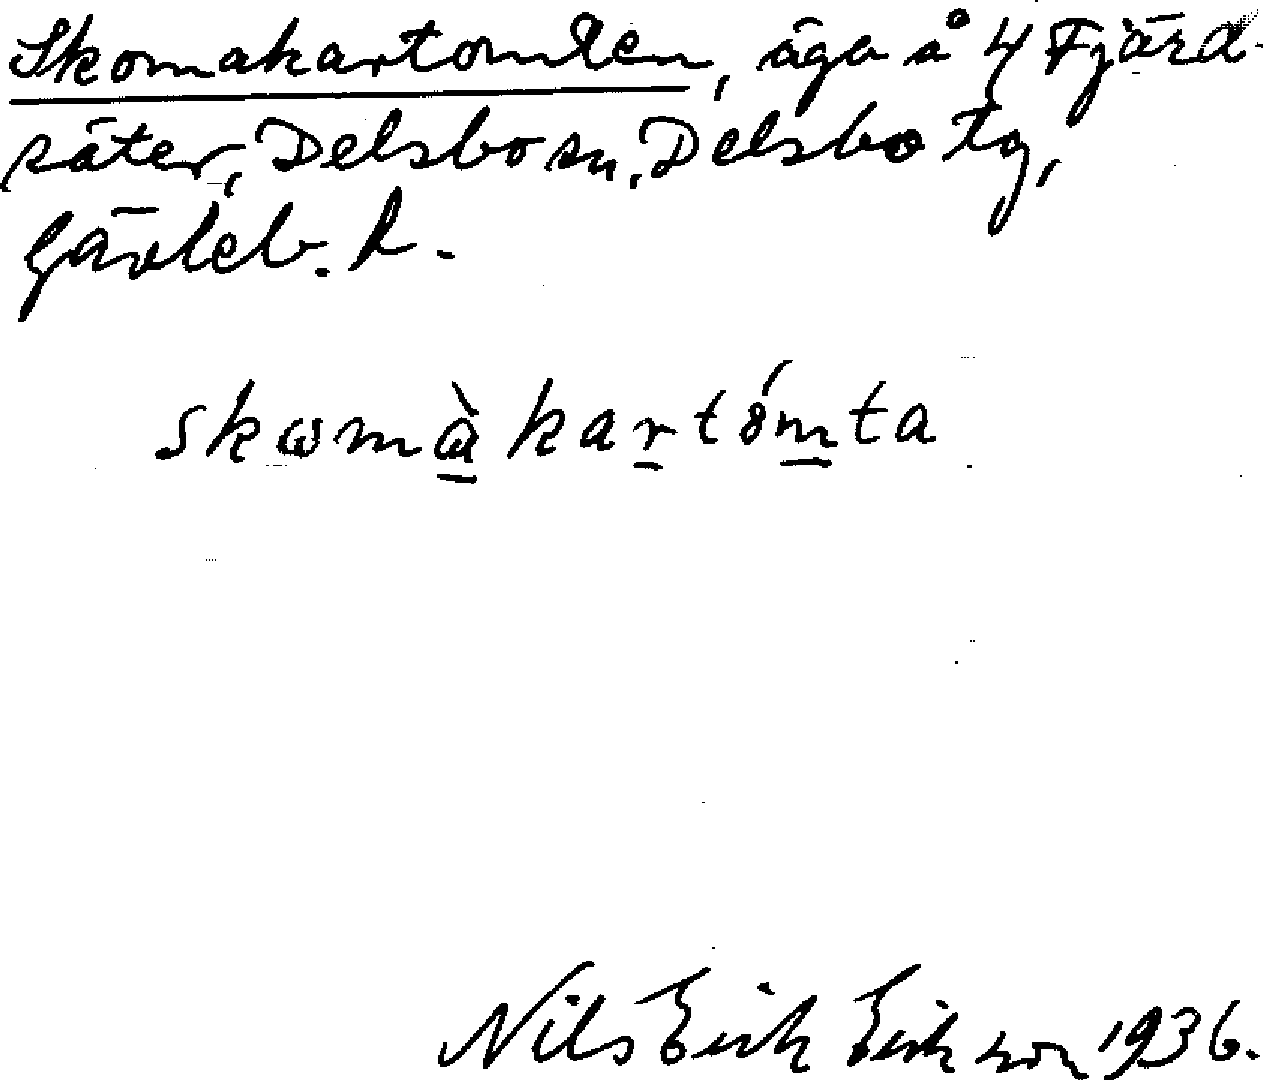 Skomakartomten, äga å 4 Fjärd-
säter, Delsbo sn, Delsbo tg,
Gävleb. l.
skωmὰkartómta
Nils Erik Eriksson 1936.